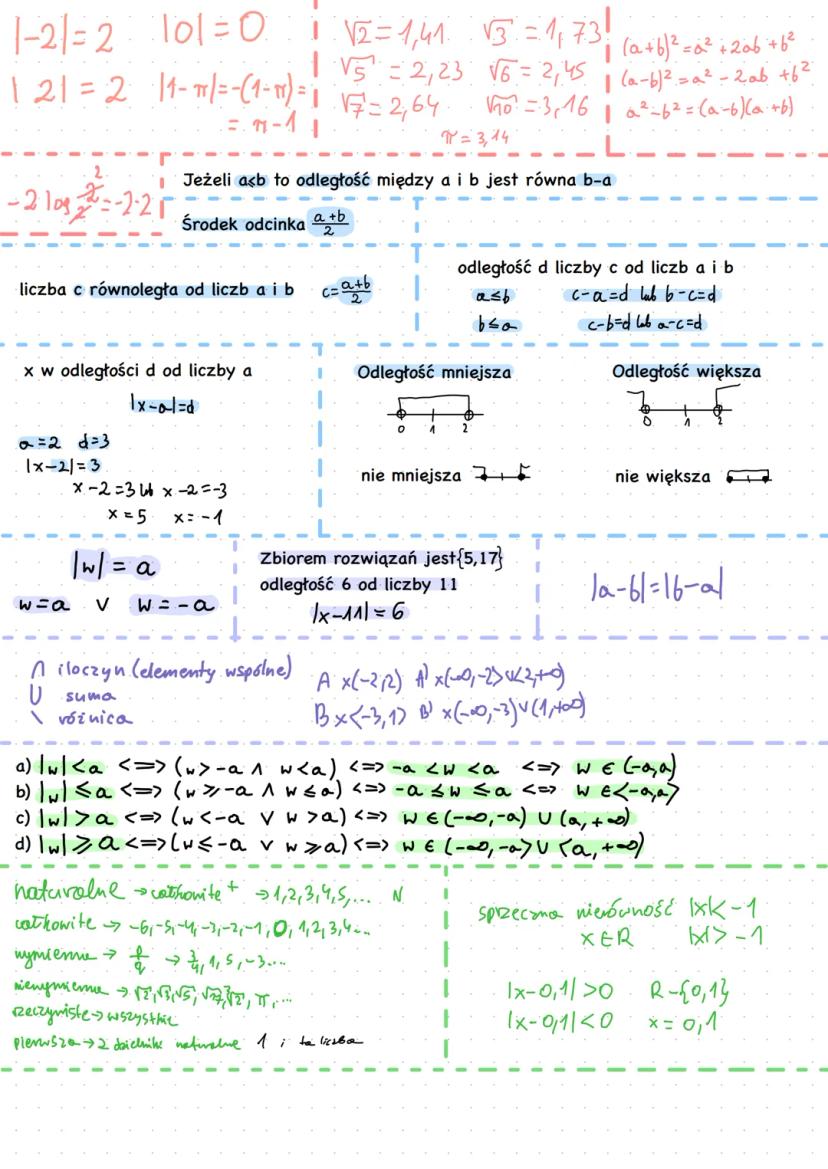 |-2|=2 |0|=0
|2|=2 |1-π|=-(1-π)=
= π-1
√2=1,41 √3=1,73
√5=2,23 √6=2,45
√7=2,64 √10=3,16
π=3,14
(a+b)²=a²+2ab+b²
(a-b)²=a²-2ab+b²
a²-b²=(a-b)(a+b)
Jeżeli a≤b to odległość między a i b jest równa b-a
Środek odcinka a+b/2
liczba c równoległa od liczb a i b c=a+b/2
odległość d liczby c od liczb a i b
a≤b c-a=d lub b-c=d
b≤a c-b=d lub a-c=d
x w odległości d od liczby a
|x-a|=d
a=2 d=3
|x-2|=3
x-2=3 lub x-2=-3
x=5 x=-1
Odległość mniejsza
0 1 2
nie mniejsza
Odległość większa
0 1 2
nie większa
|w|=a
w=a ∨ w=-a
Zbiorem rozwiązań jest{5,17}
odległość 6 od liczby 11
|x-11|=6
|a-b|=|b-a|
∩ iloczyn (elementy wspólne)
∪ suma
\ różnica
A x(-2,2) A' x(-∞,-2>∪<2,+∞)
B x<-3,1> B' x(-∞,-3)∪(1,+∞)
a) |w|<a <=> (w>-a ∧ w<a) <=> -a<w<a <=> w∈(-a,a)
b) |w|≤a <=> (w≥-a ∧ w≤a) <=> -a≤w≤a <=> w∈<-a,a>
c) |w|>a <=> (w<-a ∨ w>a) <=> w∈(-∞,-a)∪(a,+∞)
d) |w|≥a <=> (w≤-a ∨ w≥a) <=> w∈(-∞,-a>∪<a,+∞)
naturalne → całkowite + → 1,2,3,4,5,... N
całkowite → -6,-5,-4,-3,-2,-1,0,1,2,3,4...
wymierne → p/q → 3/4,1,5,-3...
niewymierne → √2,√3,√5, π,...
rzeczywiste → wszystkie
pierwsza → 2 dzielniki naturalne 1 i ta liczba
sprzeczna nierówność |x|<-1
x∈R |x|>-1
|x-0,1|>0 R-{0,1}
|x-0,1|<0 x=0,1